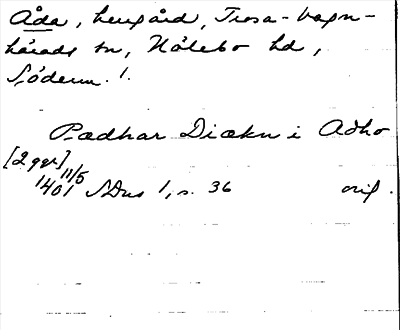 Åda, herrgård, Trosa-Vagn-
härads sn, Hölebo hd,
Söderm. 1.
Pædhar Diækn i Adho
[2 ggr] 11/5
1401 SDns 1, s. 36 orig.